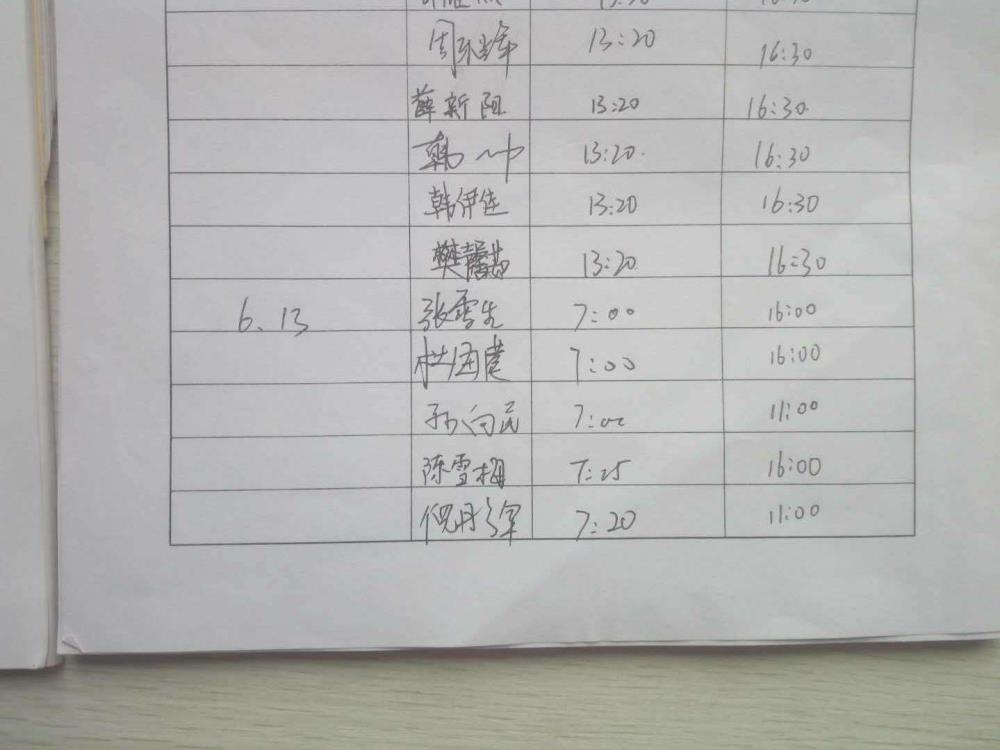 13:20 16:30
薛新阳 13:20 16:30
韩 13:20. 16:30
韩伊佳 13:20 16:30
樊馨茹 13:20 16:30
6.13 张雪先 7:00 16:00
7:00 16:00
孙向民 7:00 11:00
陈雪梅 7:25 16:00
倪丹军 7:20 11:00